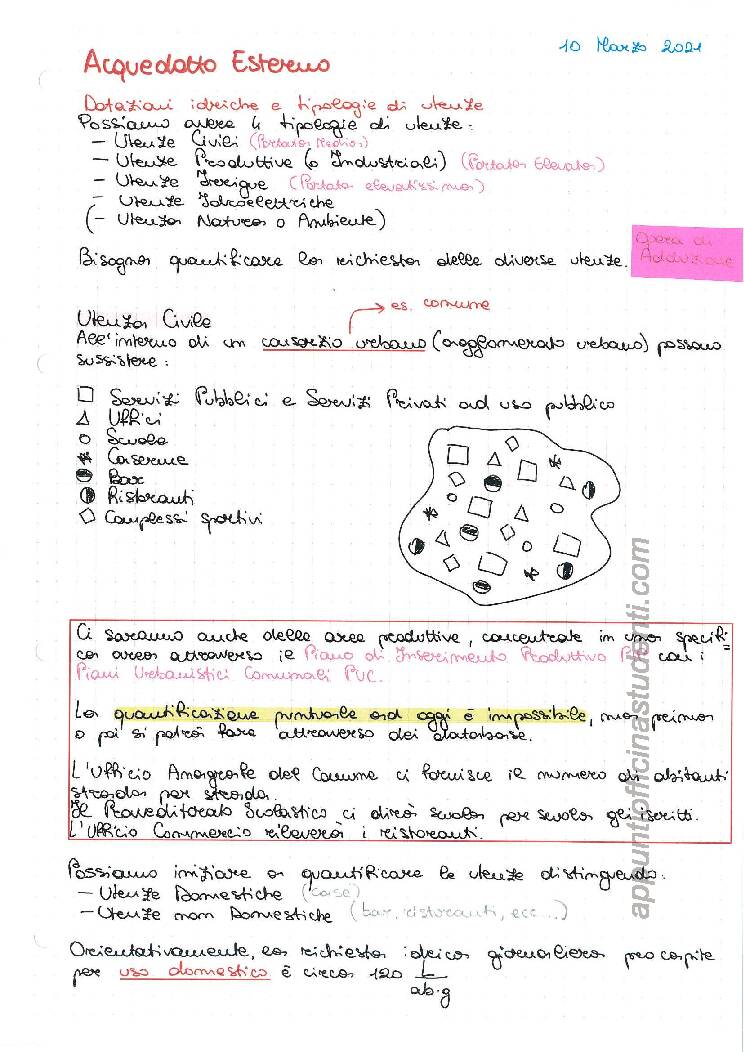 10 Marzo 2021
Acquedotto Esterno
Dotazioni idriche e tipologie di utenze
Possiamo avere 4 tipologie di utenze:
- Utenze Civili (Portata Media)
- Utenze Produttive (o Industriali) (Portata Elevata)
- Utenze Irrigue (Portata elevatissima)
- Utenze Idroelettriche
(- Utenza Natura o Ambiente)
Opera di
Adduzione
Bisogna quantificare la richiesta delle diverse utenze.
→ es. comune
Utenza Civile
All'interno di un consorzio urbano (agglomerato urbano) possono
sussistere:
Servizi Pubblici e Servizi Privati ad uso pubblico
Uffici
Scuole
Caserme
Bar
Ristoranti
Complessi sportivi
Ci saranno anche delle aree produttive, concentrate in una specifi=
ca area attraverso il Piano di Inserimento Produttivo PIP con i
Piani Urbanistici Comunali PUC.
La quantificazione puntuale ad oggi è impossibile, ma prima
o poi si potrà fare attraverso dei database.
L'Ufficio Anagrafe del Comune ci fornisce il numero di abitanti
strada per strada.
Il Provveditorato Scolastico ci dirà scuola per scuola gli iscritti.
L'Ufficio Commercio rileverà i ristoranti.
Possiamo iniziare a quantificare le utenze distinguendo:
- Utenze Domestiche (case)
- Utenze non Domestiche (bar, ristoranti, ecc...)
Orientativamente, la richiesta idrica giornaliera pro capite
per uso domestico è circa 120 L/ab·g
appuntiofficinastudenti.com